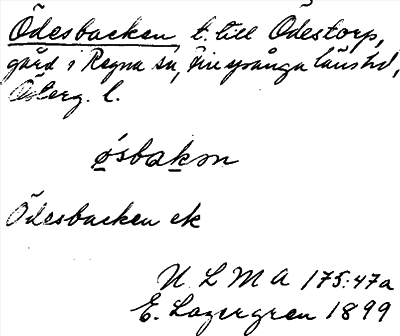 Ödesbacken t. till Ödestorp,
gård i Regna sn, Finspånga länshd,
Österg. l.
ósbakən
Ödesbacken ek
U L M A 175:47a
E. Lagergren 1899